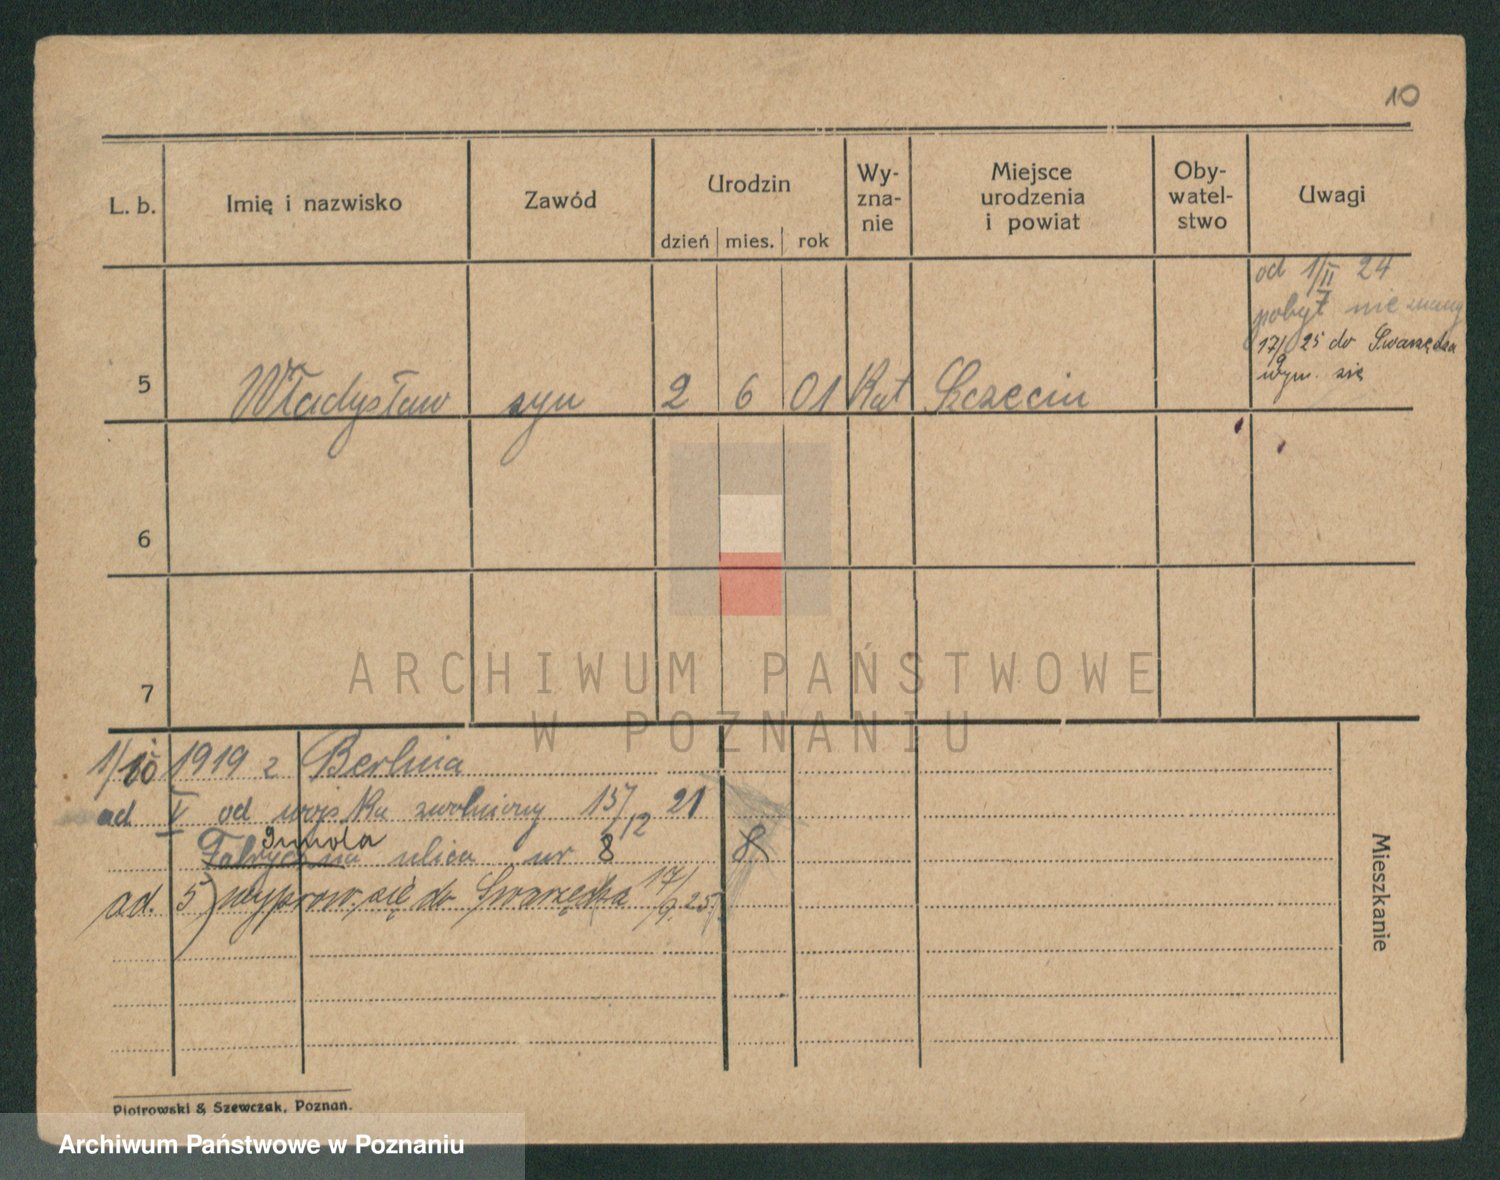 10
L. b.
Imię i nazwisko
Zawód
Urodzin
dzień mies. rok
Wy-
zna-
nie
Miejsce
urodzenia
i powiat
Oby-
watel-
stwo
Uwagi
5 Władysław syn 2 6 01 Kat Szczecin
od 1/II 24
pobyt nieznany
17/9 25 do Swarzędza
wym. się
6
7
ARCHIWUM PAŃSTWOWE
W POZNANIU
1/10 1919 z Berlina
ad V od wojska zwolniony 15/12 21
Fabryczna ulica nr 8 8
ad. 5) wyprow. się do Swarzędza 17/9. 25
Mieszkanie
Piotrowski & Szewczak, Poznań.
Archiwum Państwowe w Poznaniu